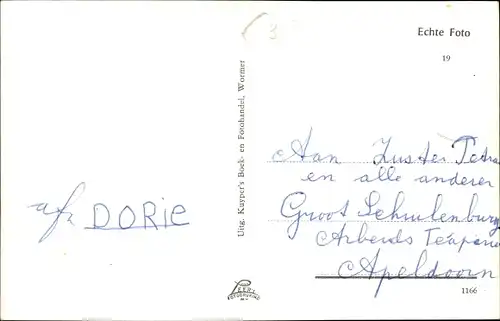 Echte Foto
19
Uitg. Kuyper's Boek- en Fotohandel, Wormer
Aan Zuster Petra
en alle anderen
Groot Schuilenburg
Arbeids Terapie
Apeldoorn
afz DORIE
1166